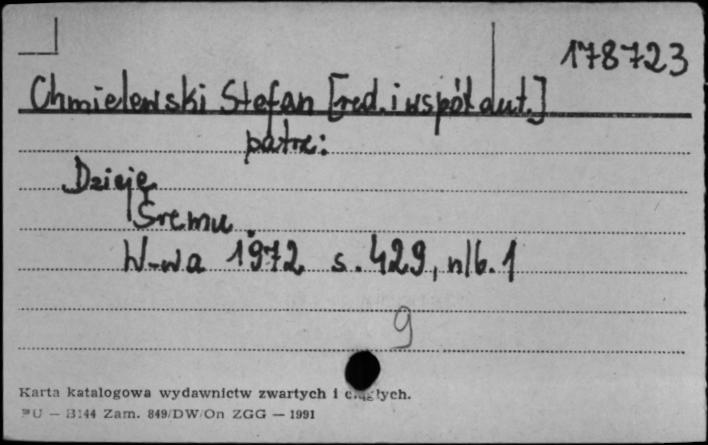 178723
Chmielewski Stefan [red. i współaut.]
patrz:
Dzieje
Śremu.
W-wa 1972 s. 429, nlb. 1
9
Karta katalogowa wydawnictw zwartych i ciągłych.
PU — B144 Zam. 849/DW/On ZGG — 1991